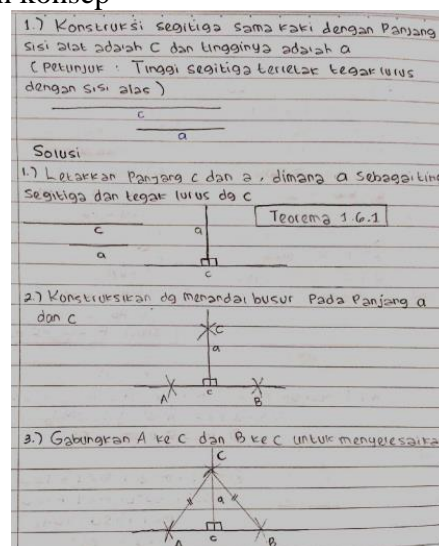 konsep
1.) Konstruksi segitiga sama kaki dengan Panjang
sisi alat adalah C dan tingginya adalah a
(Petunjuk : Tinggi segitiga terletak tegak lurus
dengan sisi alas)
c
a
Solusi
1.) Letakkan Panjang c dan a, dimana a sebagai
segitiga dan tegak lurus dg c
Teorema 1.6.1
c
a
a
c
2.) Konstruksikan dg menandai busur Pada Panjang a
dan c
C
a
A
c
B
3.) Gabungkan A ke C dan B ke C untuk
C
a
A
c
B